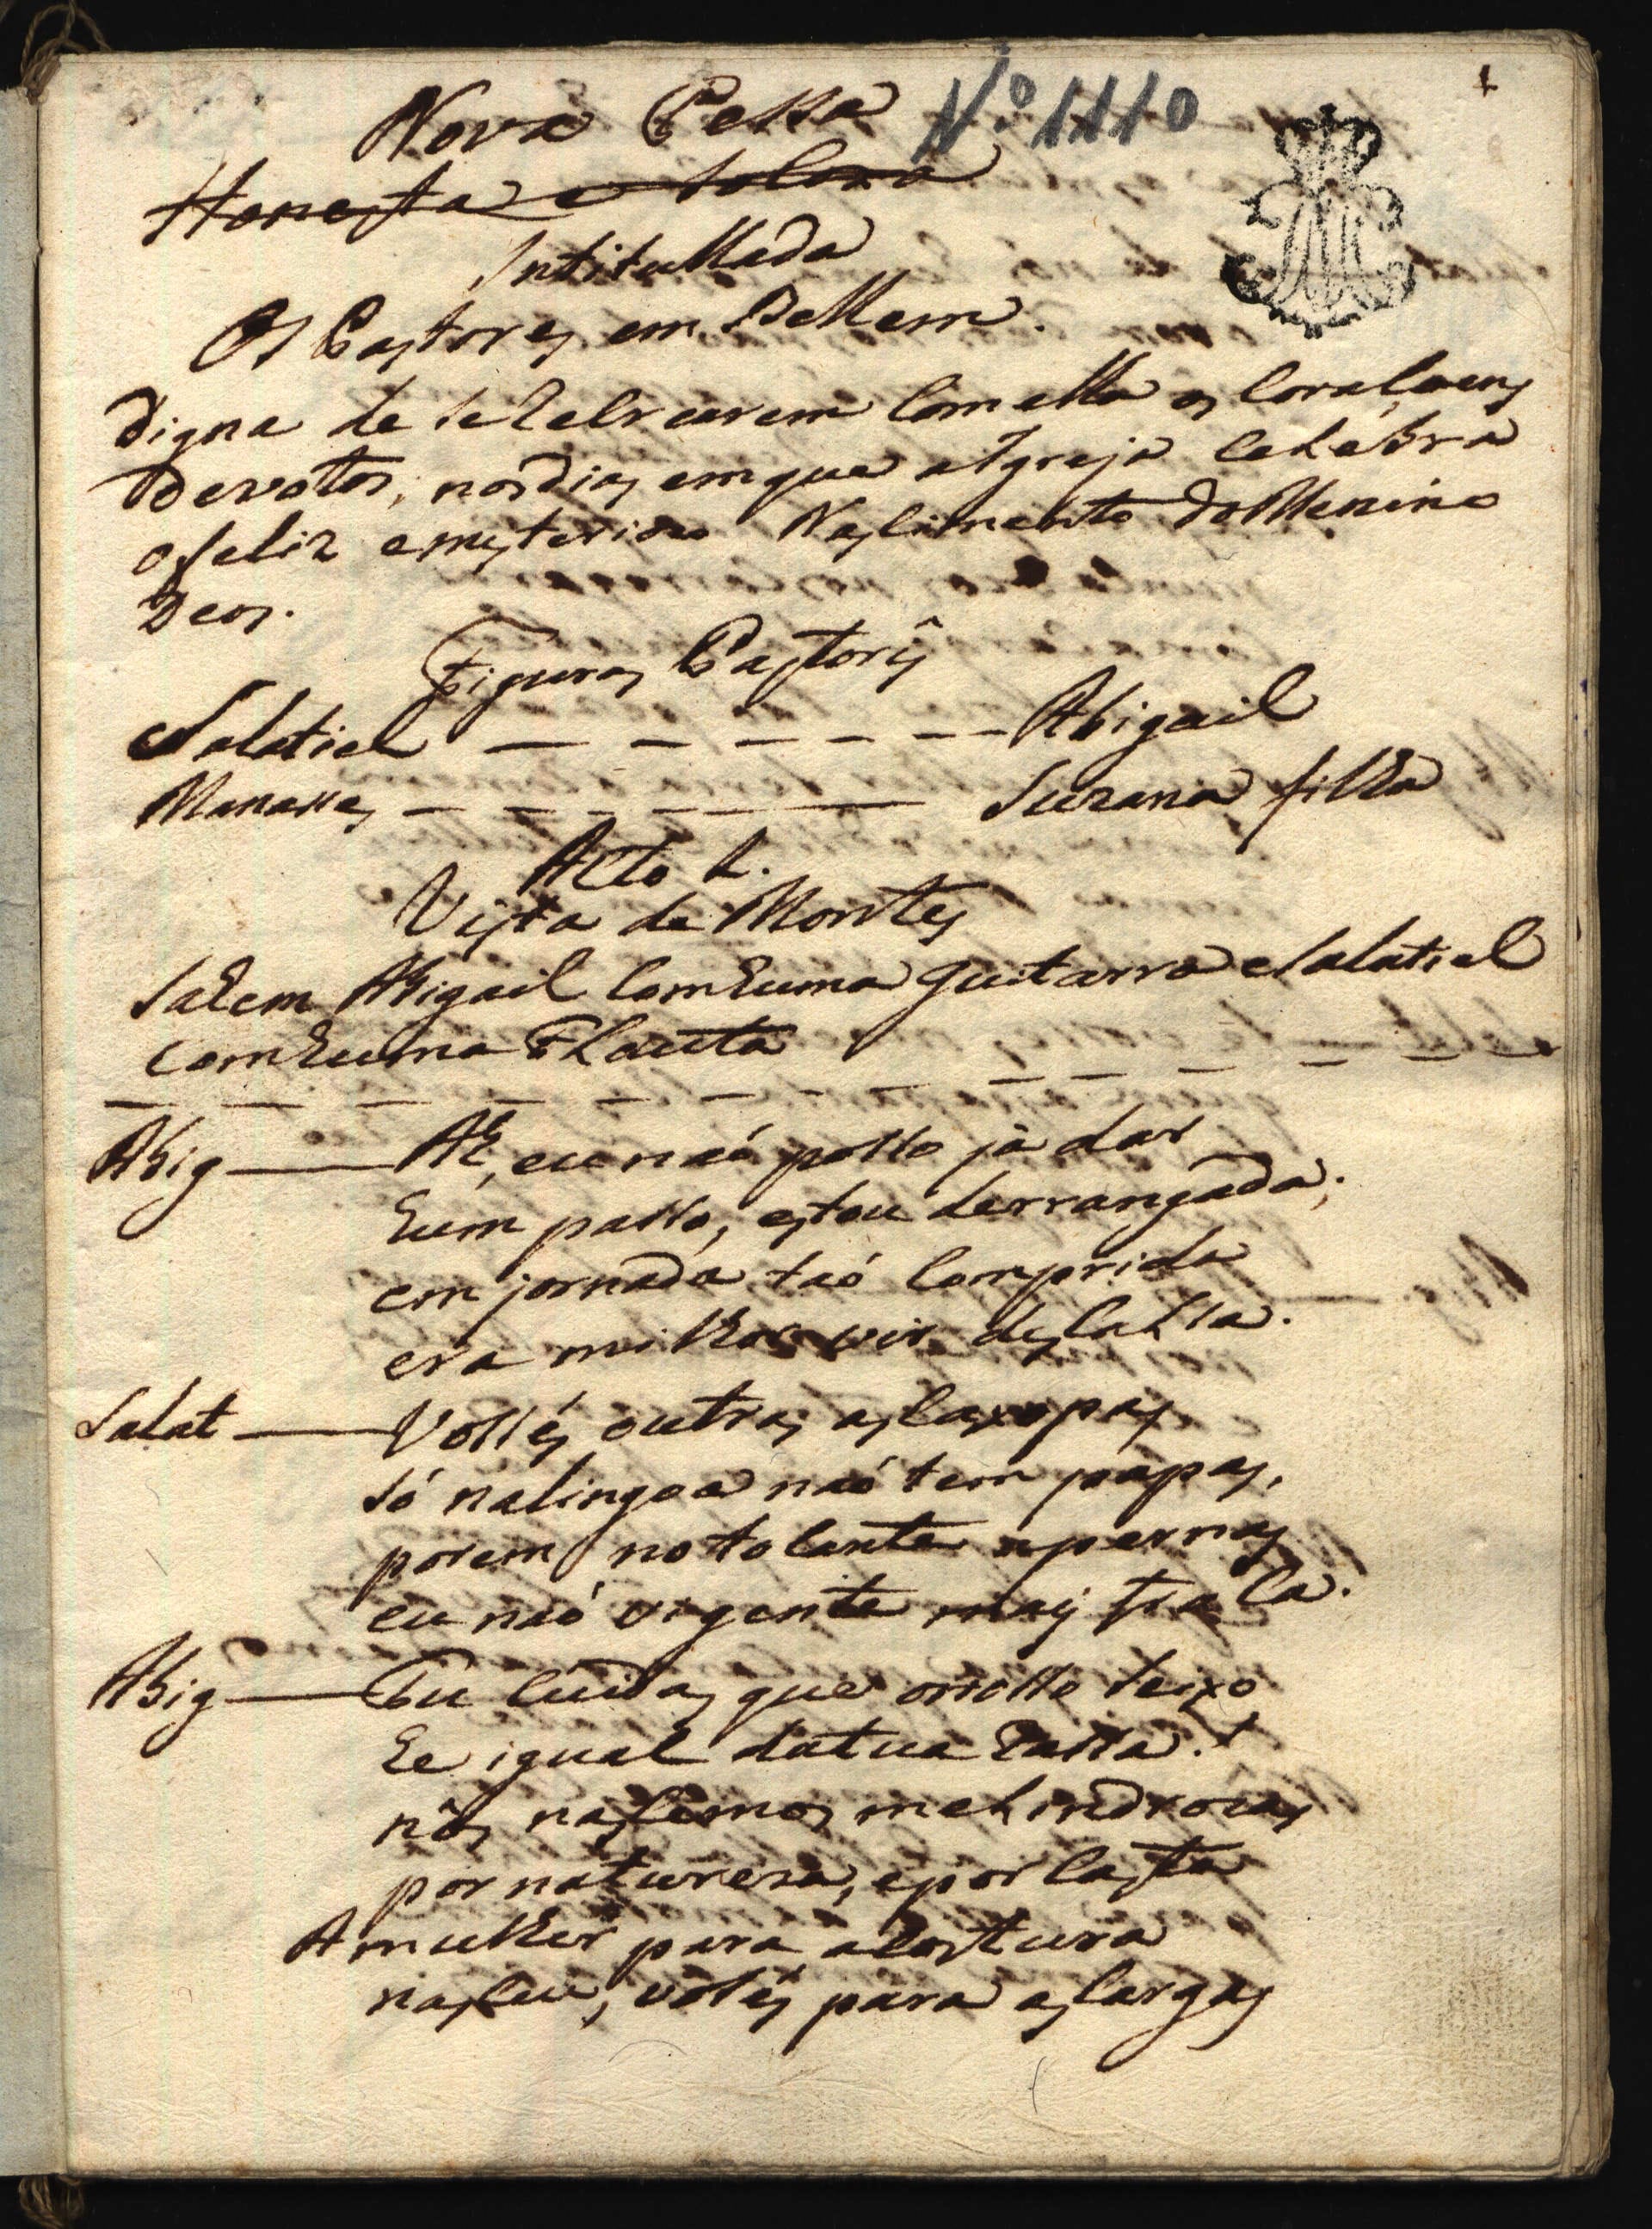 1
Nova Pessa Nº 1110
Honesta e Solozo
Intitullada
Os Pastores em Bellem.
Digna de seZelrearem Com ella os Coraçoens
Devotos; nos dias em que a Igreja Celébra
o feliz e mesterioso Nascimento do Menino
Deos.
Figuras Pastorîs
Salatiel — — — — — — — Abigail
Manasses — — — — — — Suzana filha
Acto 1.
Vista de Montes
Sahem Abigail Com huma guitarra e Salatiel
Com huma Flauta — — — — — — —
Abig — Ah, eu naó posso já dar
hum passo, estou derrangada;
em jornada taó Comprida
era milhor vir descalssa.
Salat — Vossés outras as Caxopas
só na lingoa naó tem papas,
porem no tocante a pernas
eu naó vi gente mais fraca.
Abig — Tu Cuidas que o nosso seixo
he igual da tua Rassa?
nós nascemos melindrozas
por natureza, e por Casta
A mulher para a Costura
nasceu, vosés para as Cargas